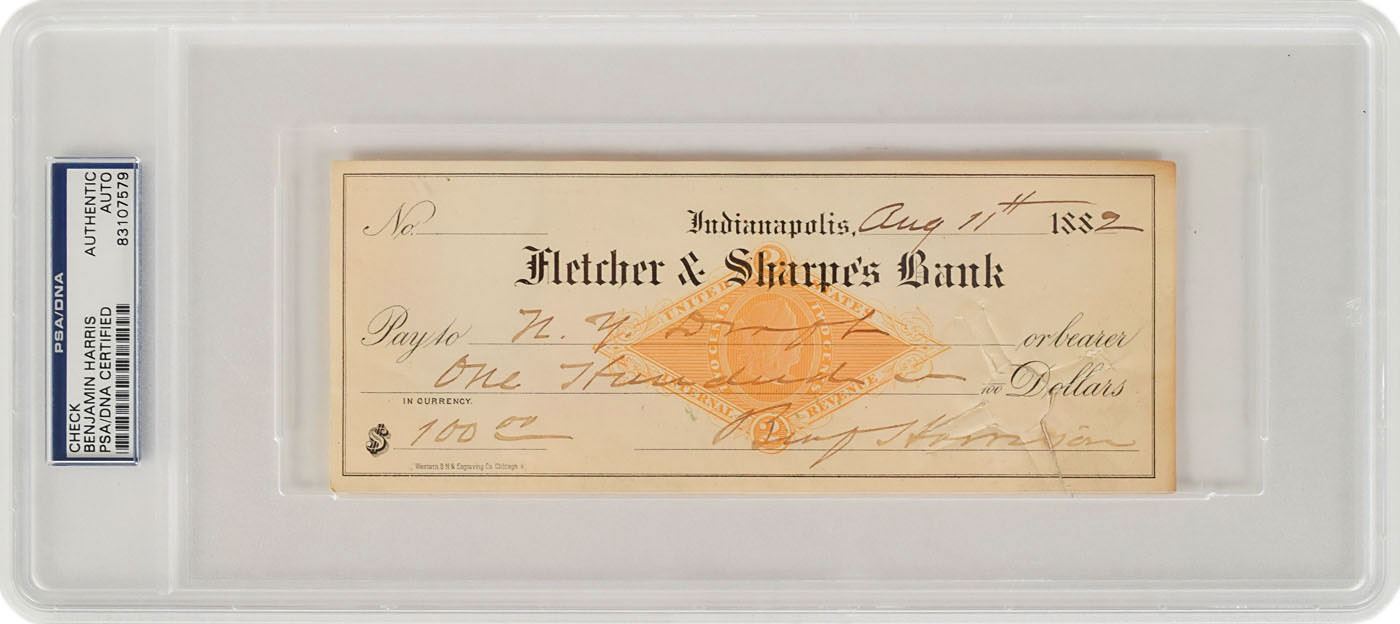 PSA/DNA
CHECK
BENJAMIN HARRIS
PSA/DNA CERTIFIED
AUTHENTIC
AUTO
83107579
No. Indianapolis, Aug 11th 1882
Fletcher & Sharpe's Bank
UNITED STATES
Pay to N. Y. Draft or bearer
TWO CENTS TWO CENTS
One Hundred 100 Dollars
IN CURRENCY.
INTERNAL REVENUE
2
2
$ 100 00 Benj Harrison
Western B N & Engraving Co. Chicago